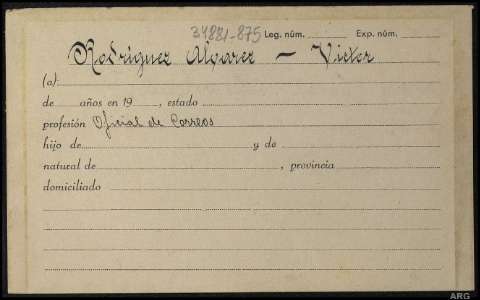 34881-875 Leg. núm. Exp. núm.
Rodríguez Alvarez — Victor
(a)
de años en 19 , estado
profesión Oficial de Correos
hijo de y de
natural de , provincia
domiciliado
ARG